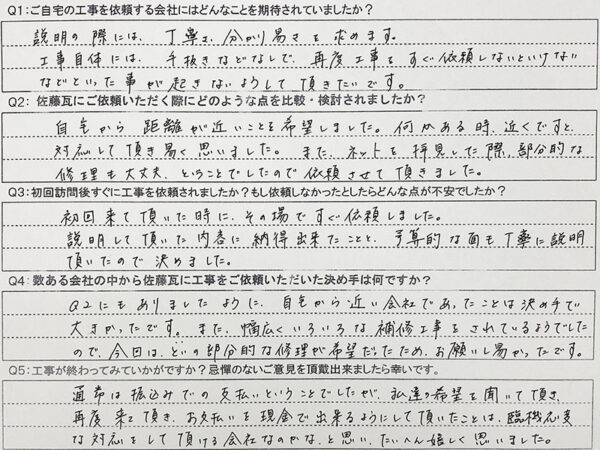 Q1:ご自宅の工事を依頼する会社にはどんなことを期待されていましたか?
説明の際には、丁寧さ、分かり易さを求めます。
工事自体には、手抜きなどなしで、再度工事をすぐ依頼しないといけない
などといった事が起きないようして頂きたいです。
Q2: 佐藤瓦にご依頼いただく際にどのような点を比較・検討されましたか?
自宅から距離が近いことを希望しました。何かある時、近くですと、
対応して頂き易く思いました。また、ネットを拝見した際、部分的な
修理も大丈夫、ということでしたので依頼させて頂きました。
Q3:初回訪問後すぐに工事を依頼されましたか?もし依頼しなかったとしたらどんな点が不安でしたか?
初回来て頂いた時に、その場ですぐ依頼しました。
説明して頂いた内容に納得出来たことと、予算的な面も丁寧に説明
頂いたので決めました。
Q4:数ある会社の中から佐藤瓦に工事をご依頼いただいた決め手は何ですか?
Q2にもありましたように、自宅から近い会社であったことは決め手で
大きかったです。また、幅広くいろいろな補修工事をされているようでした
ので、今回は、といの部分的な修理が希望だったため、お願いし易かったです。
Q5:工事が終わってみていかがですか?忌憚のないご意見を頂戴出来ましたら幸いです。
通常は振込みでの支払いということでしたが、私達の希望を聞いて頂き、
再度来て頂き、お支払いを現金で出来るようにして頂いたことは、臨機応変
な対応をして頂ける会社なのかな、と思い、たいへん嬉しく思いました。